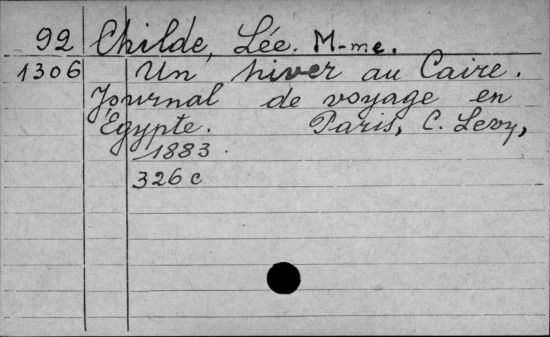 92 Childe, Lée. M-me.
1306 Un hiver au Caire.
Journal de voyage en
Égypte. Paris, C. Levy,
1883.
326 c